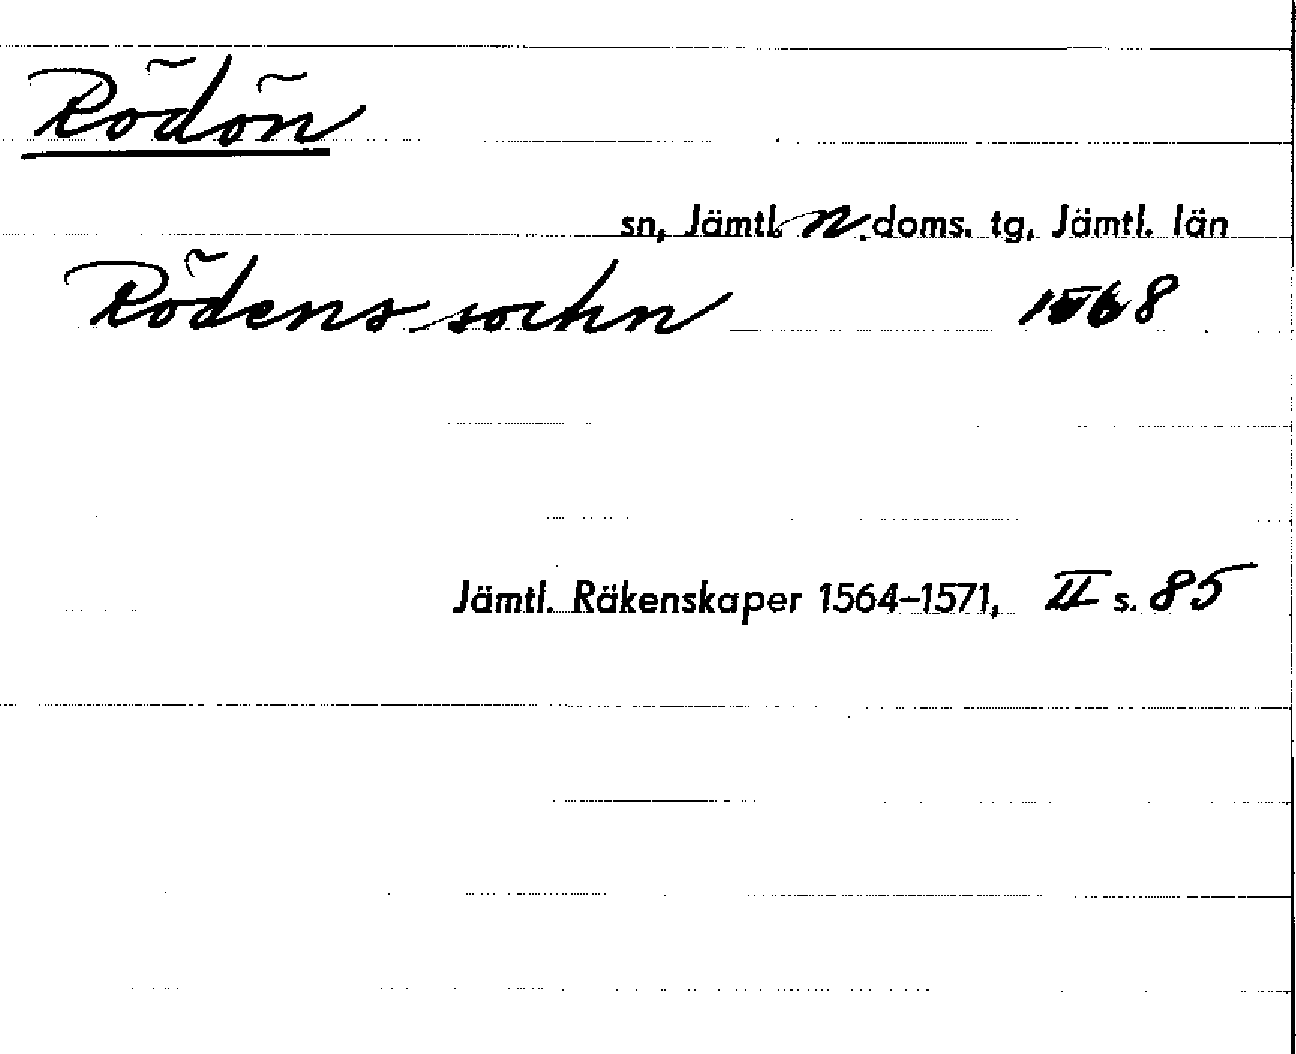 Rödön
sn, Jämtl. n. doms. tg, Jämtl. län
Rödens sochn 1568
Jämtl. Räkenskaper 1564–1571, II s. 85